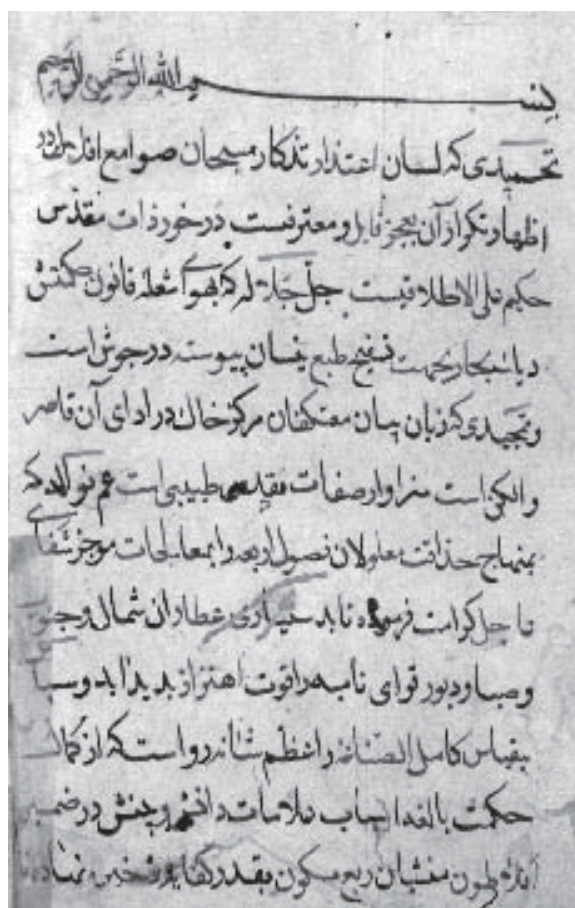 بسم الله الرحمن الرحیم
تحمیدی که لسان اعتذار تذکار مسبحان صوامع افلاک در
اظهار تکرار آن بعجز قایل و معترفست در خور ذات مقدس
حکیم علی الاطلاقیست جل جلاله که بهوای شعله قانون حکمتش
بجهت تنضیج طبع پیوسته در جوش است
و تمجیدی که زبان بیان معتکفان مرکز خاک در ادای آن قاصر
و الکن است سزاوار صفات طبیبی است عم نواله که
بمنهاج حذاقت معلولان فصول اربعه را بمعالجات موجز شفای
عاجل کرامت فرموده تا بدستیاری عطاران شمال و جنوب
و صبا و دبور قوای نامیه را قوت اهتزاز پدید آید و سپاس
بیقیاس کامل الصناعه را عظم شانه رواست که از کمال
حکمت بالغه اسباب علامات دانش و بینش در ضمیر
منشیان ربع مسکون بقدر